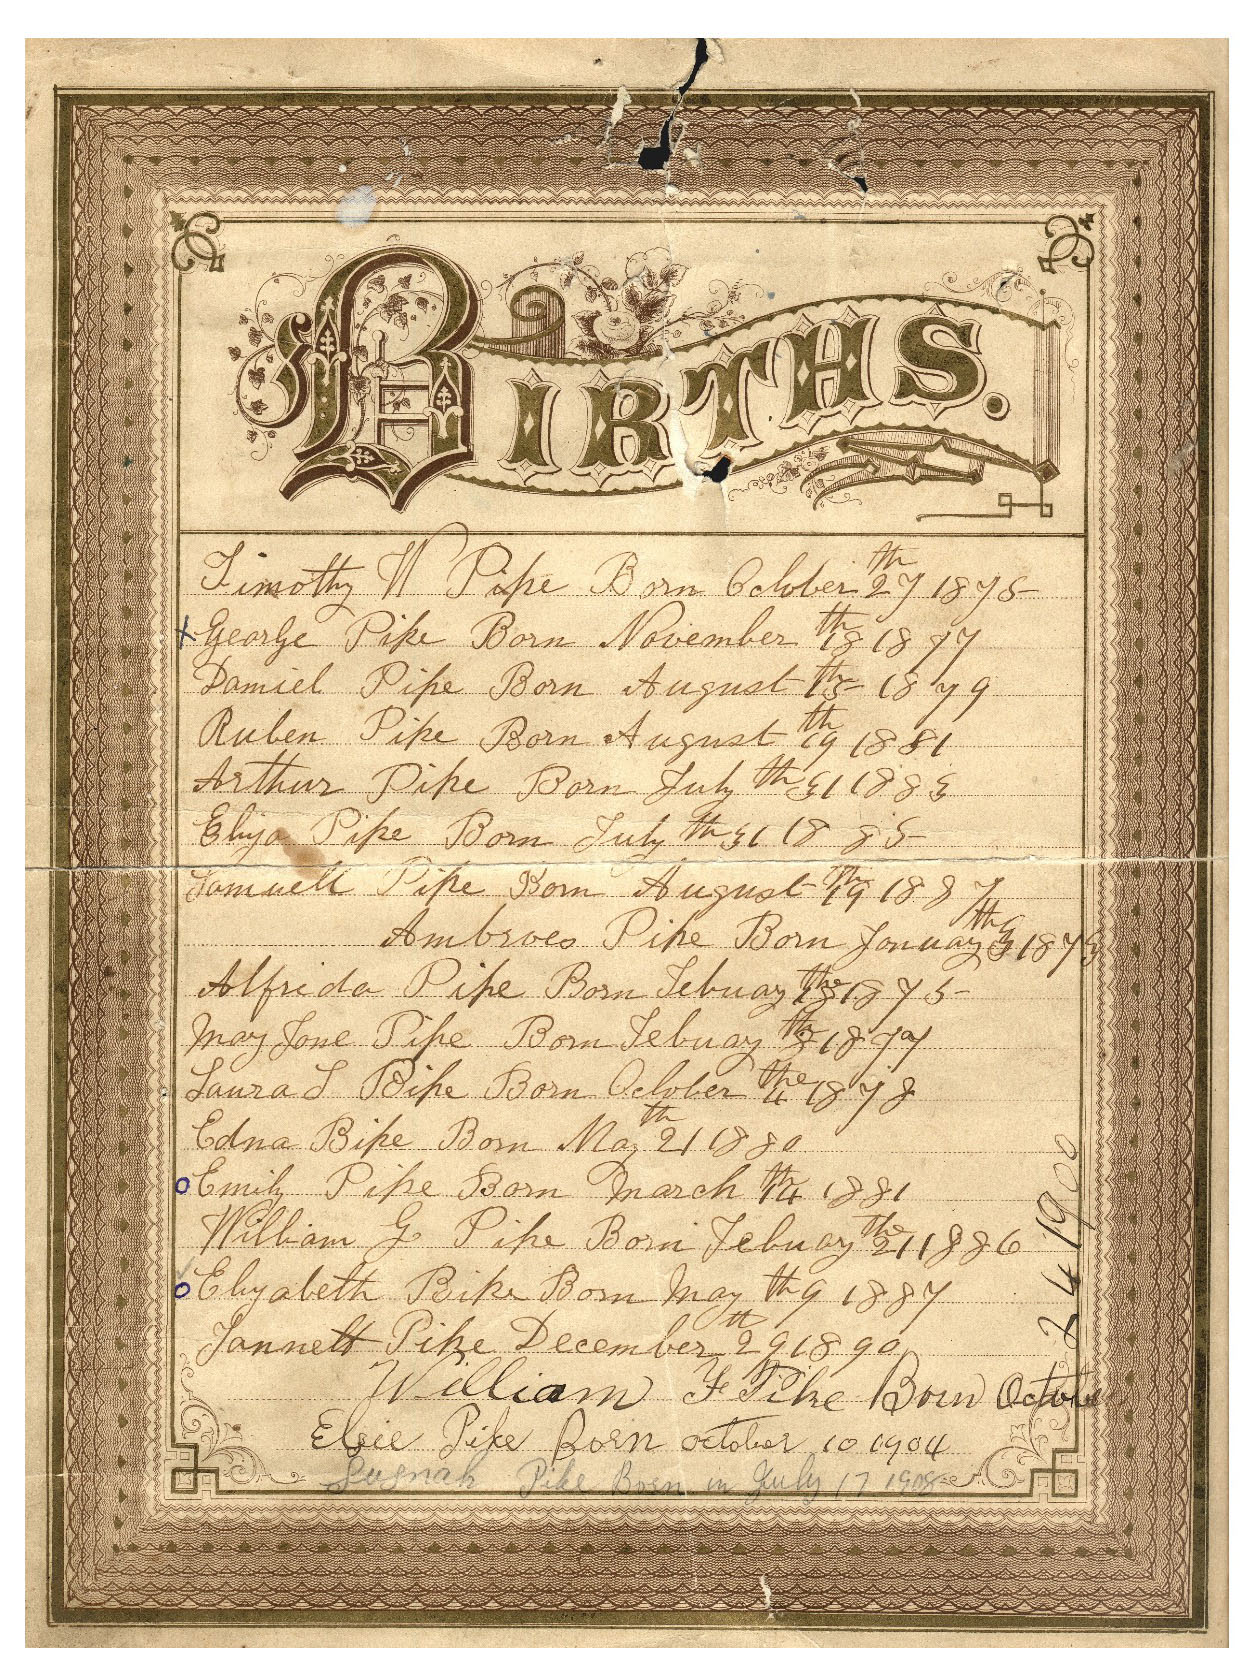 BIRTHS.
Timothy W Pike Born October 27th 1875
x George Pike Born November 18th 1877
Daniel Pike Born August 15th 1879
Ruben Pike Born August 19th 1881
Arthur Pike Born July th 31 1883
Elija Pike Born July th 31 1885
Samuell Pike Born August 19th 1887
Ambroes Pike Born Januay th 1873
Alfrida Pike Born Febuay the 1875
May Jane Pike Born Febuay th 1877
Laura S Pike Born October the 4 1878
Edna Pike Born May 21th 1880
o Emily Pike Born March 14th 1881
William G Pike Born Febuay the 21 1886
o Elizabeth Pike Born May th 9 1887
Jannett Pike December 29th 1890
William F Pike Born October
24 1900
Elsie Pike Born october 10 1904
Pike Born in July 17 1908